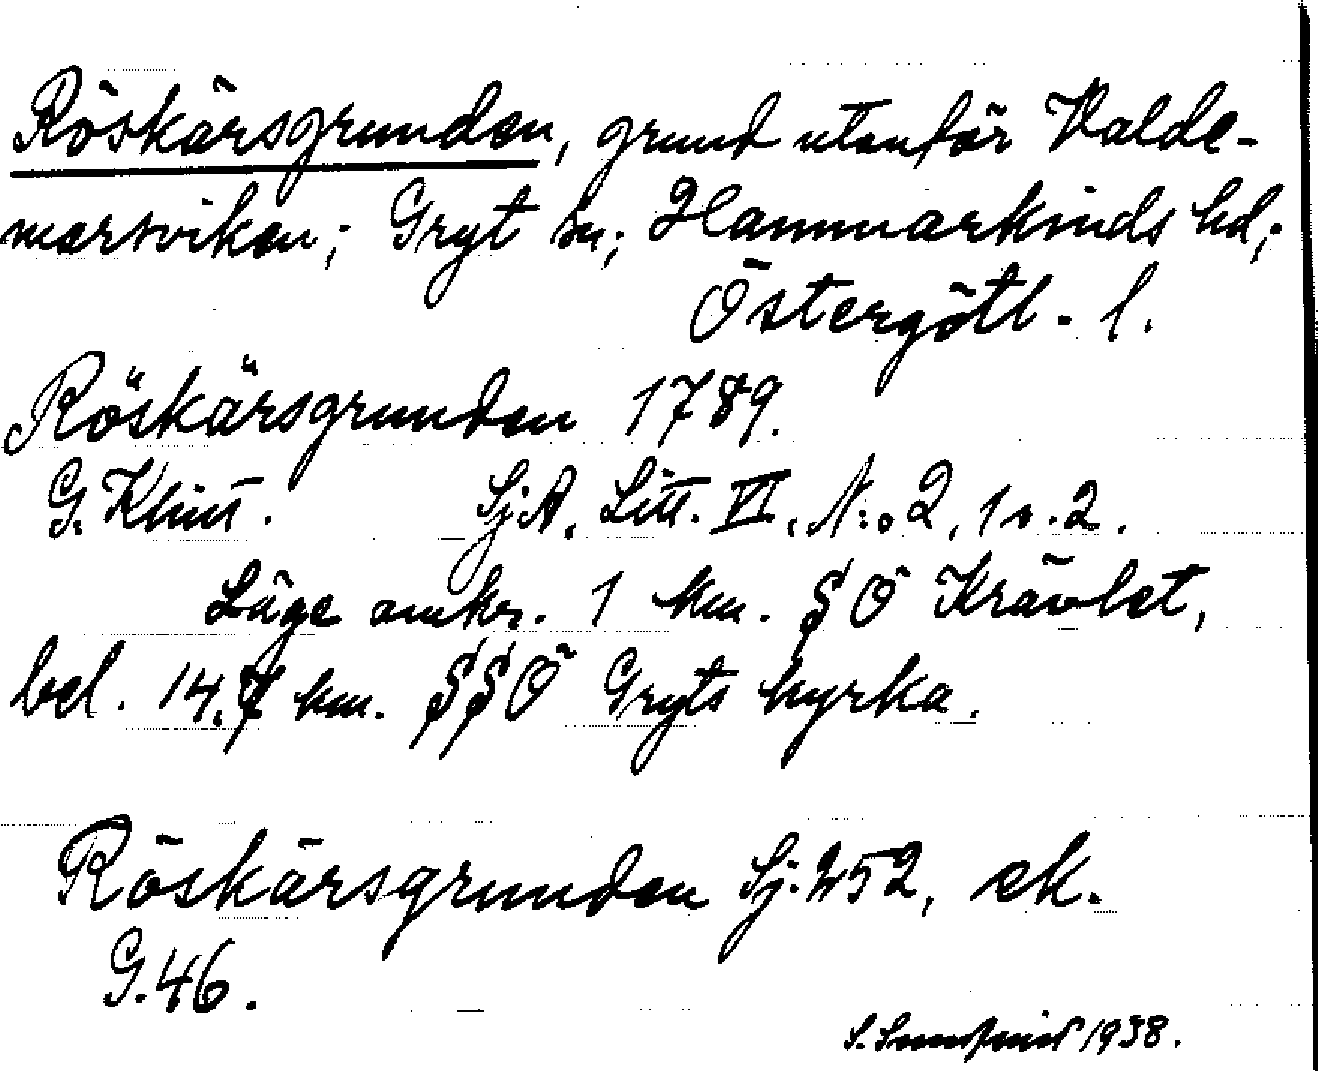 Röskärsgrunden, grund utanför Valde-
marsviken; Gryt sn; Hammarkinds hd;
Östergötl. l.
Röskärsgrunden 1789.
G. Klint. SjA. Litt. VI. N:o 2, 1 o. 2.
Läge omkr. 1 km. SÖ Krävlet,
bel. 14.7 km. SSÖ Gryts kyrka.
Röskärsgrunden Sj. 252, ek.
G. 46.
1938.